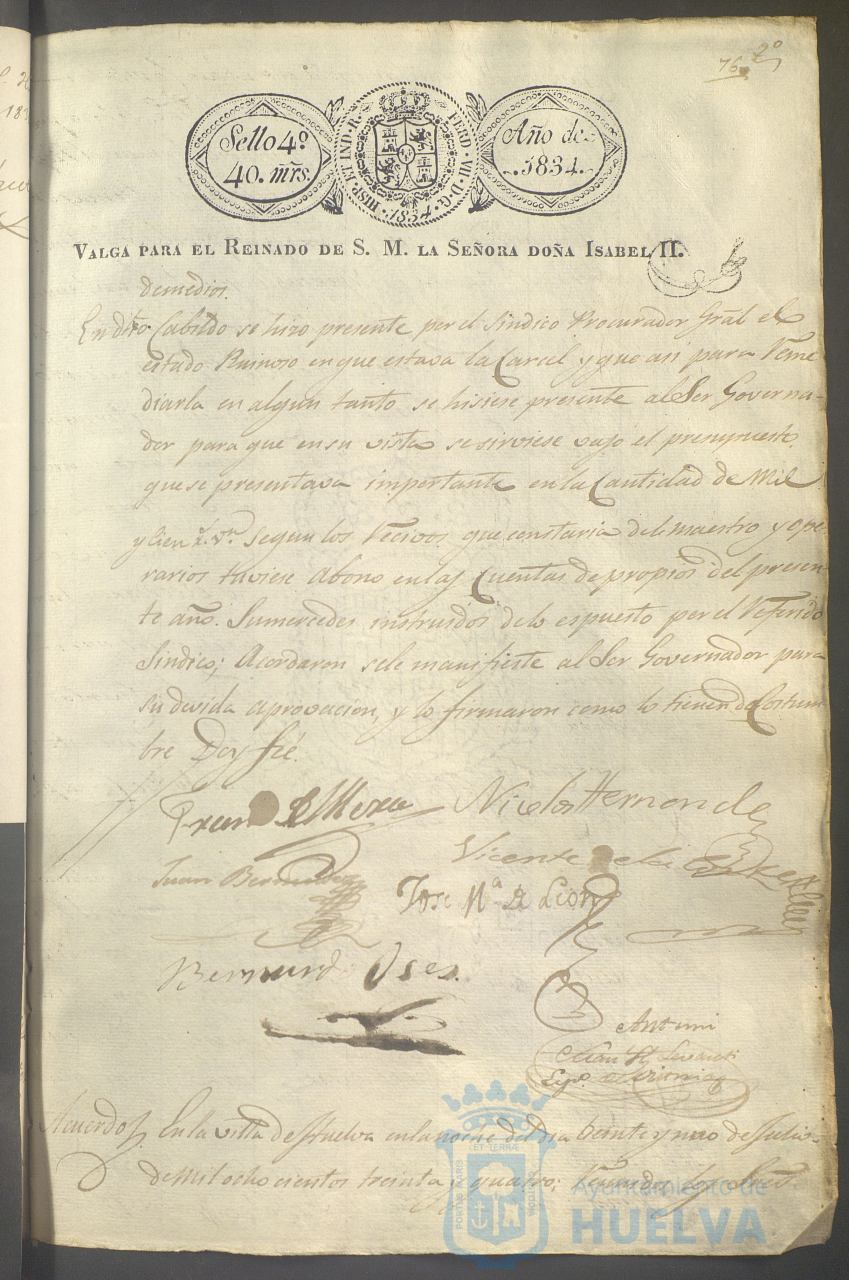 76 2º
Sello 4º
40. mrs.
HISP. ET IND. R. FERD. VII. D. G. 1834.
Año de
1834.
VALGA PARA EL REINADO DE S. M. LA SEÑORA DOÑA ISABEL II.
demedios.
En dho. Cabildo se hizo presente por el Sindico Procurador Gral el
estado Ruinoso en que estava la Carcel y que asi para Reme
diarla en algun tanto se hisiese presente al Sor Governa-
dor para que en su vista se sirviese vajo el presupuesto
que se presentava importante en la Cantidad de Mil
y Cien rs. vn. segun los Recivos que constaria del maestro y ope-
rarios tuviese Abono en las Cuentas de propios del presen
te año. Sumercedes instruidos de lo espuesto por el Referido
Sindico; Acordaron se le manifieste al Sor Governador para
su devida Aprovacion, y lo firmaron como lo tienen de Costum
bre Doy fé.
Franco de Mora Nicolas Hernandez
Vicente de la
Juan Bermudez
Jose Mª de Leon
Bernard Oses.
Antemi
Acuerdo En la villa de Huelva en la noche del dia beinte y uno de Julio
de mil ocho cientos treinta y quatro; Reunidos los Sres.
PORTUS MARIS ET TERRAE CUSTODIA
Ayuntamiento de
HUELVA